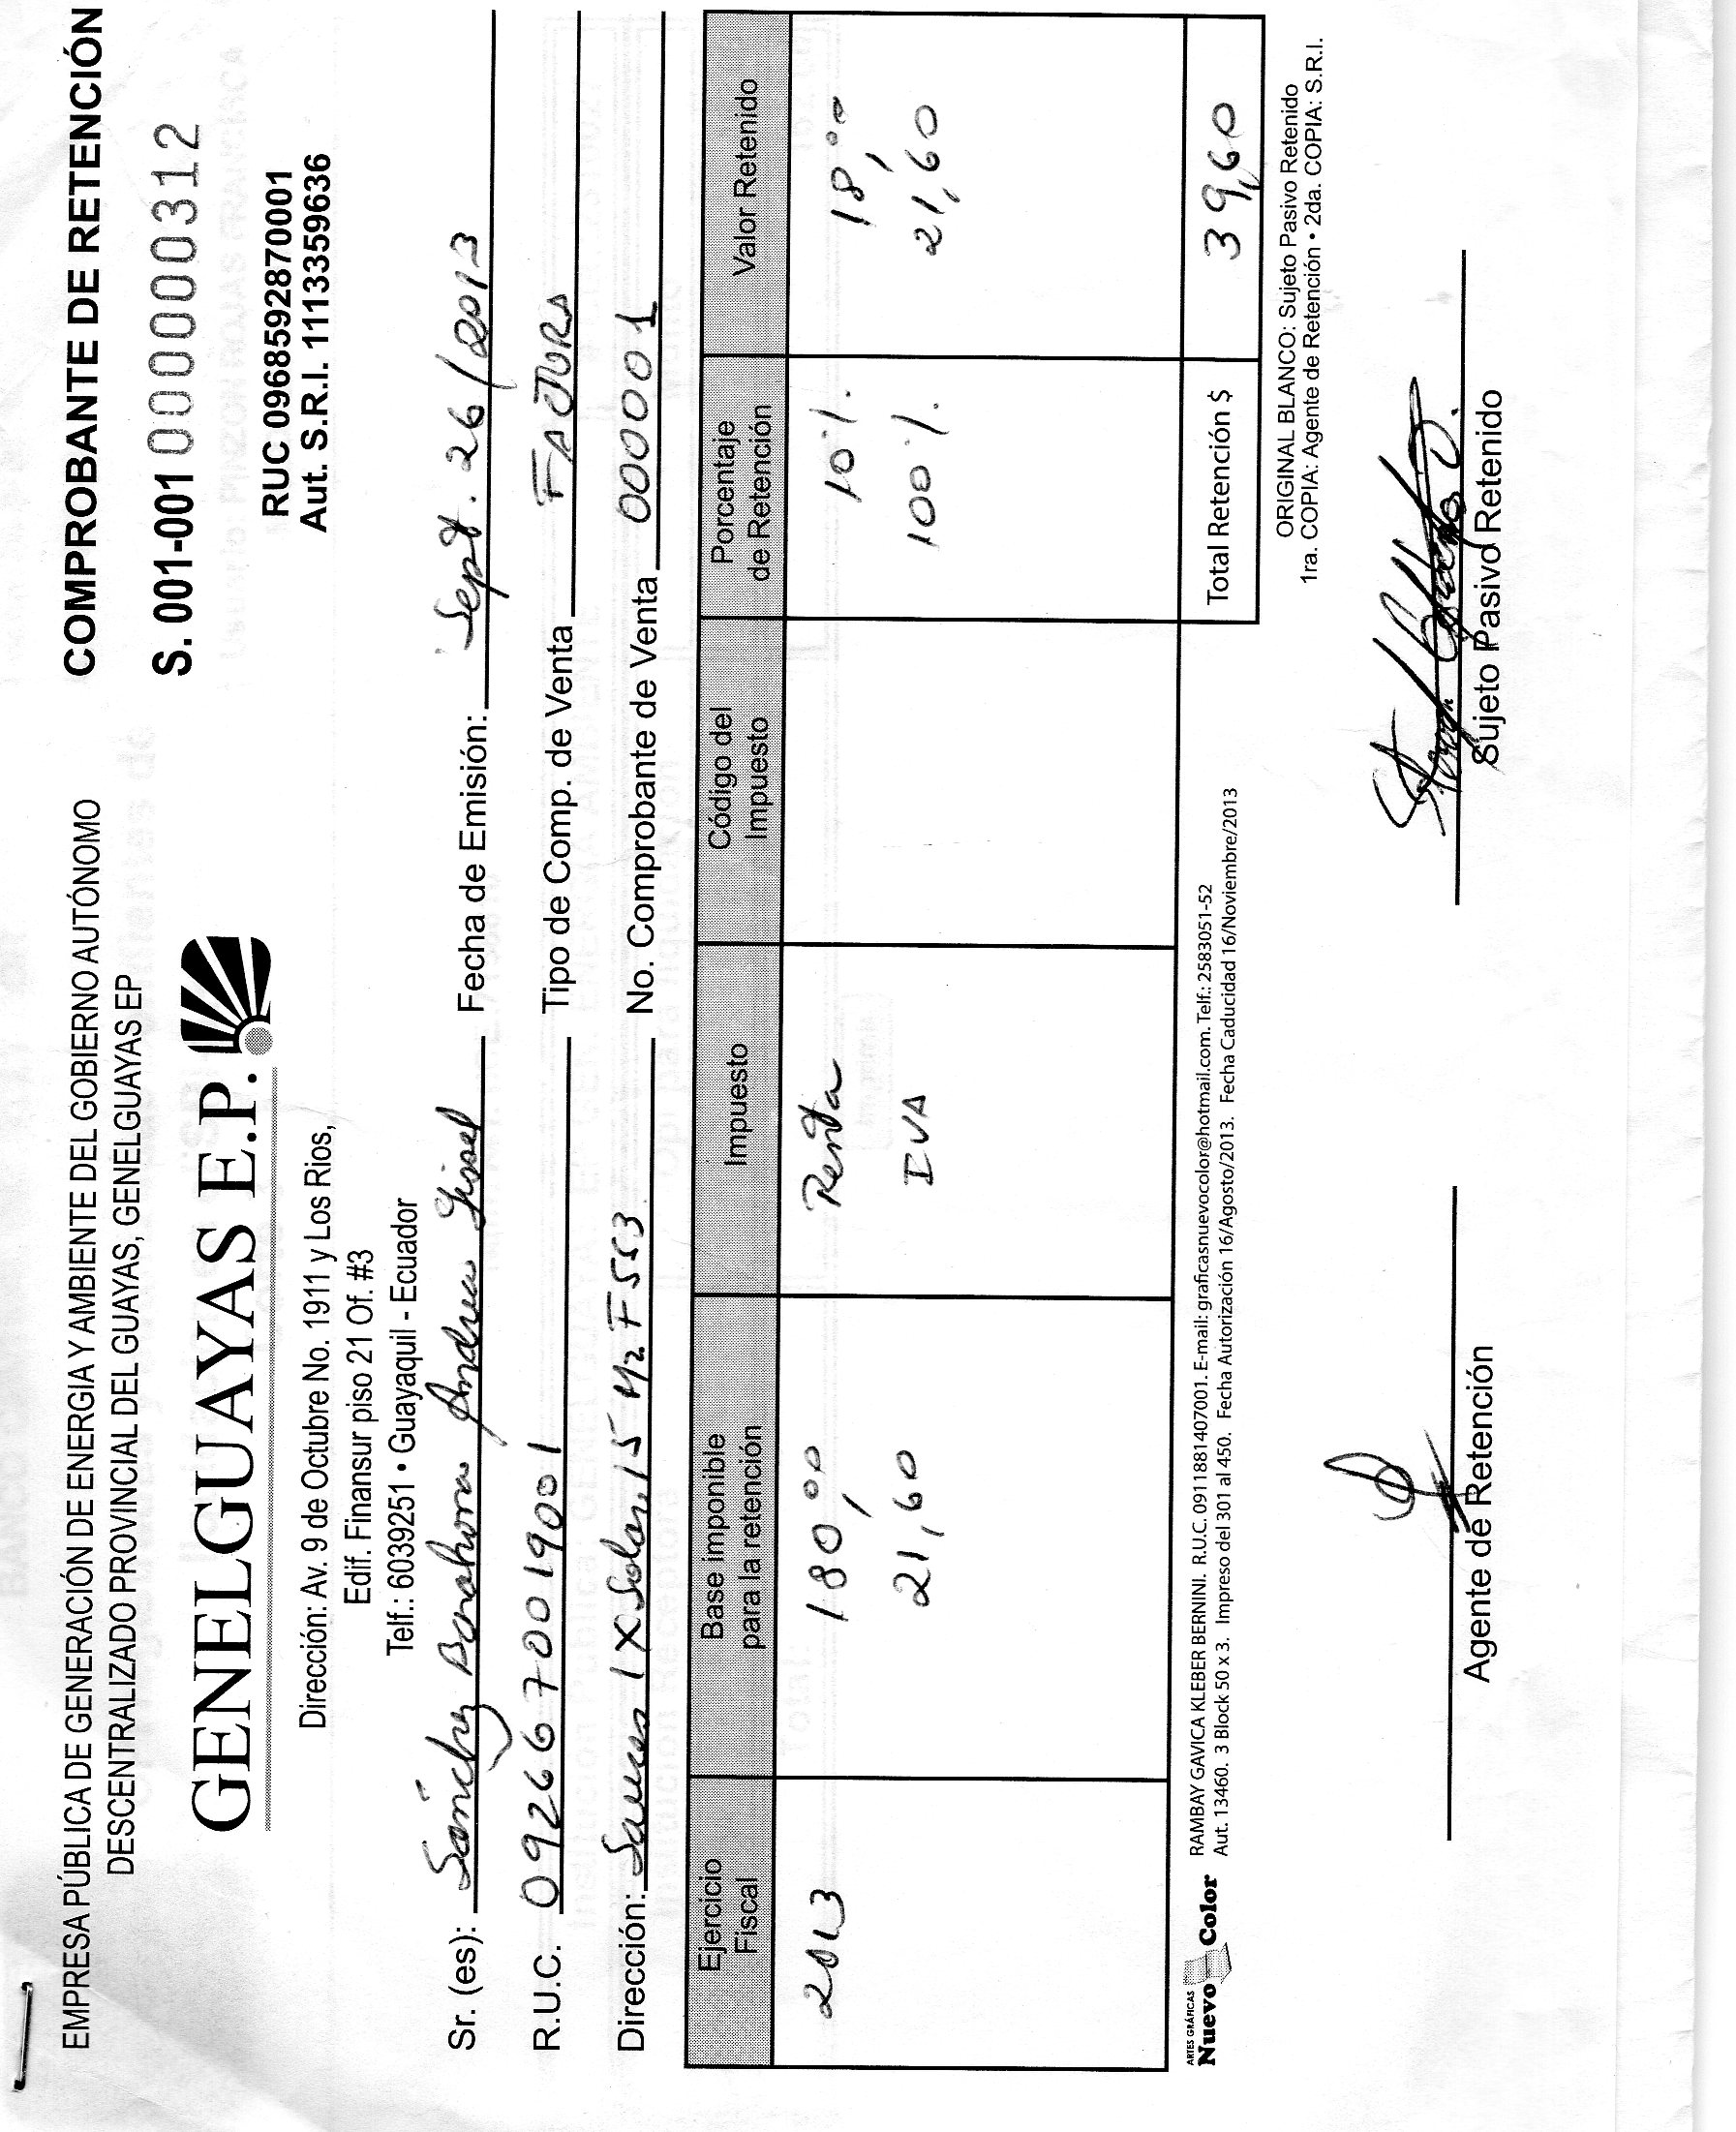 EMPRESA PÚBLICA DE GENERACIÓN DE ENERGIA Y AMBIENTE DEL GOBIERNO AUTÓNOMO
DESCENTRALIZADO PROVINCIAL DEL GUAYAS, GENELGUAYAS EP
GENELGUAYAS E.P.
Dirección: Av. 9 de Octubre No. 1911 y Los Rios,
Edif. Finansur piso 21 Of. #3
Telf.: 6039251 • Guayaquil - Ecuador
COMPROBANTE DE RETENCIÓN
S. 001-001 000000312
RUC 0968592870001
Aut. S.R.I. 1113359636
Sr. (es): Sánchez Barahona Andrea Gissel
Fecha de Emisión: Sept. 26/2013
R.U.C. 0926670019001
Tipo de Comp. de Venta FACTURA
Dirección: Sauces IX Solar 15 Mz F 553
No. Comprobante de Venta 0000001
Ejercicio Fiscal Base imponible para la retención Impuesto Código del Impuesto Porcentaje de Retención Valor Retenido
2013 180,00 Renta 10%. 18,00
21,60 IVA 100%. 21,60
Total Retención $ 39,60
ARTES GRÁFICAS
Nuevo Color
RAMBAY GAVICA KLEBER BERNINI. R.U.C. 0911881407001. E-mail: graficasnuevocolor@hotmail.com. Telf.: 2583051-52
Aut. 13460. 3 Block 50 x 3. Impreso del 301 al 450. Fecha Autorización 16/Agosto/2013. Fecha Caducidad 16/Noviembre/2013
ORIGINAL BLANCO: Sujeto Pasivo Retenido
1ra. COPIA: Agente de Retención • 2da. COPIA: S.R.I.
Agente de Retención
Sujeto Pasivo Retenido